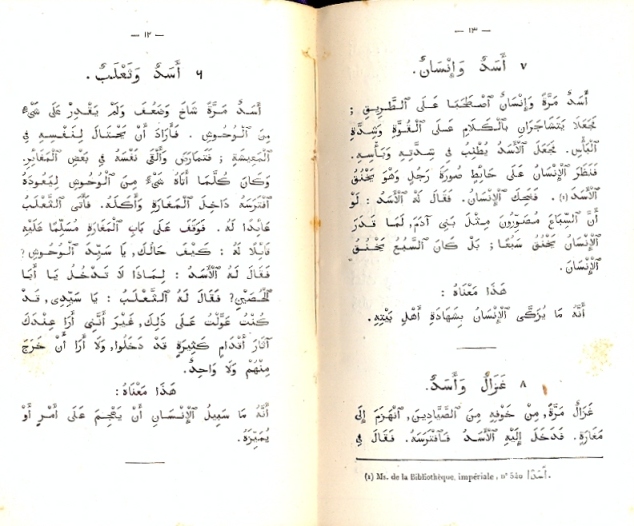 — ١٢ —
٦ أَسَدٌ وَثَعْلَبٌ.
أَسَدٌ مَرَّةً شَاخَ وَضَعُفَ وَلَمْ يَقْدِرْ عَلَى شَيْءٍ
مِنَ ٱلْوُحُوشِ. فَأَرَادَ أَنْ يَحْتَالَ لِنَفْسِهِ فِي
ٱلْمَعِيشَةِ ; فَتَمَارَضَ وَأَلْقَى نَفْسَهُ فِي بَعْضِ ٱلْمَغَائِرِ.
وَكَانَ كُلَّمَا أَتَاهُ شَيْءٌ مِنَ ٱلْوُحُوشِ لِيَعُودَهُ
ٱفْتَرَسَهُ دَاخِلَ ٱلْمَغَارَةِ وَأَكَلَهُ. فَأَتَى ٱلثَّعْلَبُ
عَائِدًا لَهُ. فَوَقَفَ عَلَى بَابِ ٱلْمَغَارَةِ مُسَلِّمًا عَلَيْهِ
قَائِلًا لَهُ : كَيْفَ حَالُكَ, يَا سَيِّدَ ٱلْوُحُوشِ?
فَقَالَ لَهُ ٱلْأَسَدُ : لِمَاذَا لَا تَدْخُلُ يَا أَبَا
ٱلْحُصَيْنِ? فَقَالَ لَهُ ٱلثَّعْلَبُ : يَا سَيِّدِي, قَدْ
كُنْتُ عَوَّلْتُ عَلَى ذٰلِكَ, غَيْرَ أَنَّنِي أَرَا عِنْدَكَ
آثَارَ أَقْدَامٍ كَثِيرَةٍ قَدْ دَخَلُوا, وَلَا أَرَا أَنْ خَرَجَ
مِنْهُمْ وَلَا وَاحِدٌ.
هٰذَا مَعْنَاهُ :
أَنَّهُ مَا سَبِيلُ ٱلْإِنْسَانِ أَنْ يَهْجِمَ عَلَى أَمْرٍ أَوْ
يُمَيِّزَهُ.
— ١٣ —
٧ أَسَدٌ وَإِنْسَانٌ.
أَسَدٌ مَرَّةً وَإِنْسَانٌ ٱصْطَحَبَا عَلَى ٱلطَّرِيقِ ;
فَجَعَلَا يَتَشَاجَرَانِ بِٱلْكَلَامِ عَلَى ٱلْقُوَّةِ وَشِدَّةِ
ٱلْبَأْسِ. فَجَعَلَ ٱلْأَسَدُ يُطْنِبُ فِي شِدَّتِهِ وَبَأْسِهِ.
فَنَظَرَ ٱلْإِنْسَانُ عَلَى حَائِطٍ صُورَةَ رَجُلٍ وَهُوَ يَخْنُقُ
ٱلْأَسَدَ (١). فَضَحِكَ ٱلْإِنْسَانُ. فَقَالَ لَهُ ٱلْأَسَدُ : لَوْ
أَنَّ ٱلسِّبَاعَ مُصَوِّرُونَ مِثْلَ بَنِي آدَمَ, لَمَا قَدَرَ
ٱلْإِنْسَانُ يَخْنُقُ سَبُعًا ; بَلْ كَانَ ٱلسَّبُعُ يَخْنُقُ
ٱلْإِنْسَانَ.
هٰذَا مَعْنَاهُ :
أَنَّهُ مَا يُزَكَّى ٱلْإِنْسَانُ بِشَهَادَةِ أَهْلِ بَيْتِهِ.
٨ غَزَالٌ وَأَسَدٌ.
غَزَالٌ مَرَّةً, مِنْ خَوْفِهِ مِنَ ٱلصَّيَّادِينَ, ٱنْهَزَمَ إِلَى
مَغَارَةٍ. فَدَخَلَ إِلَيْهِ ٱلْأَسَدُ فَٱفْتَرَسَهُ. فَقَالَ فِي
(1) Ms. de la Bibliothèque impériale, n° 540 أَسَدًا.